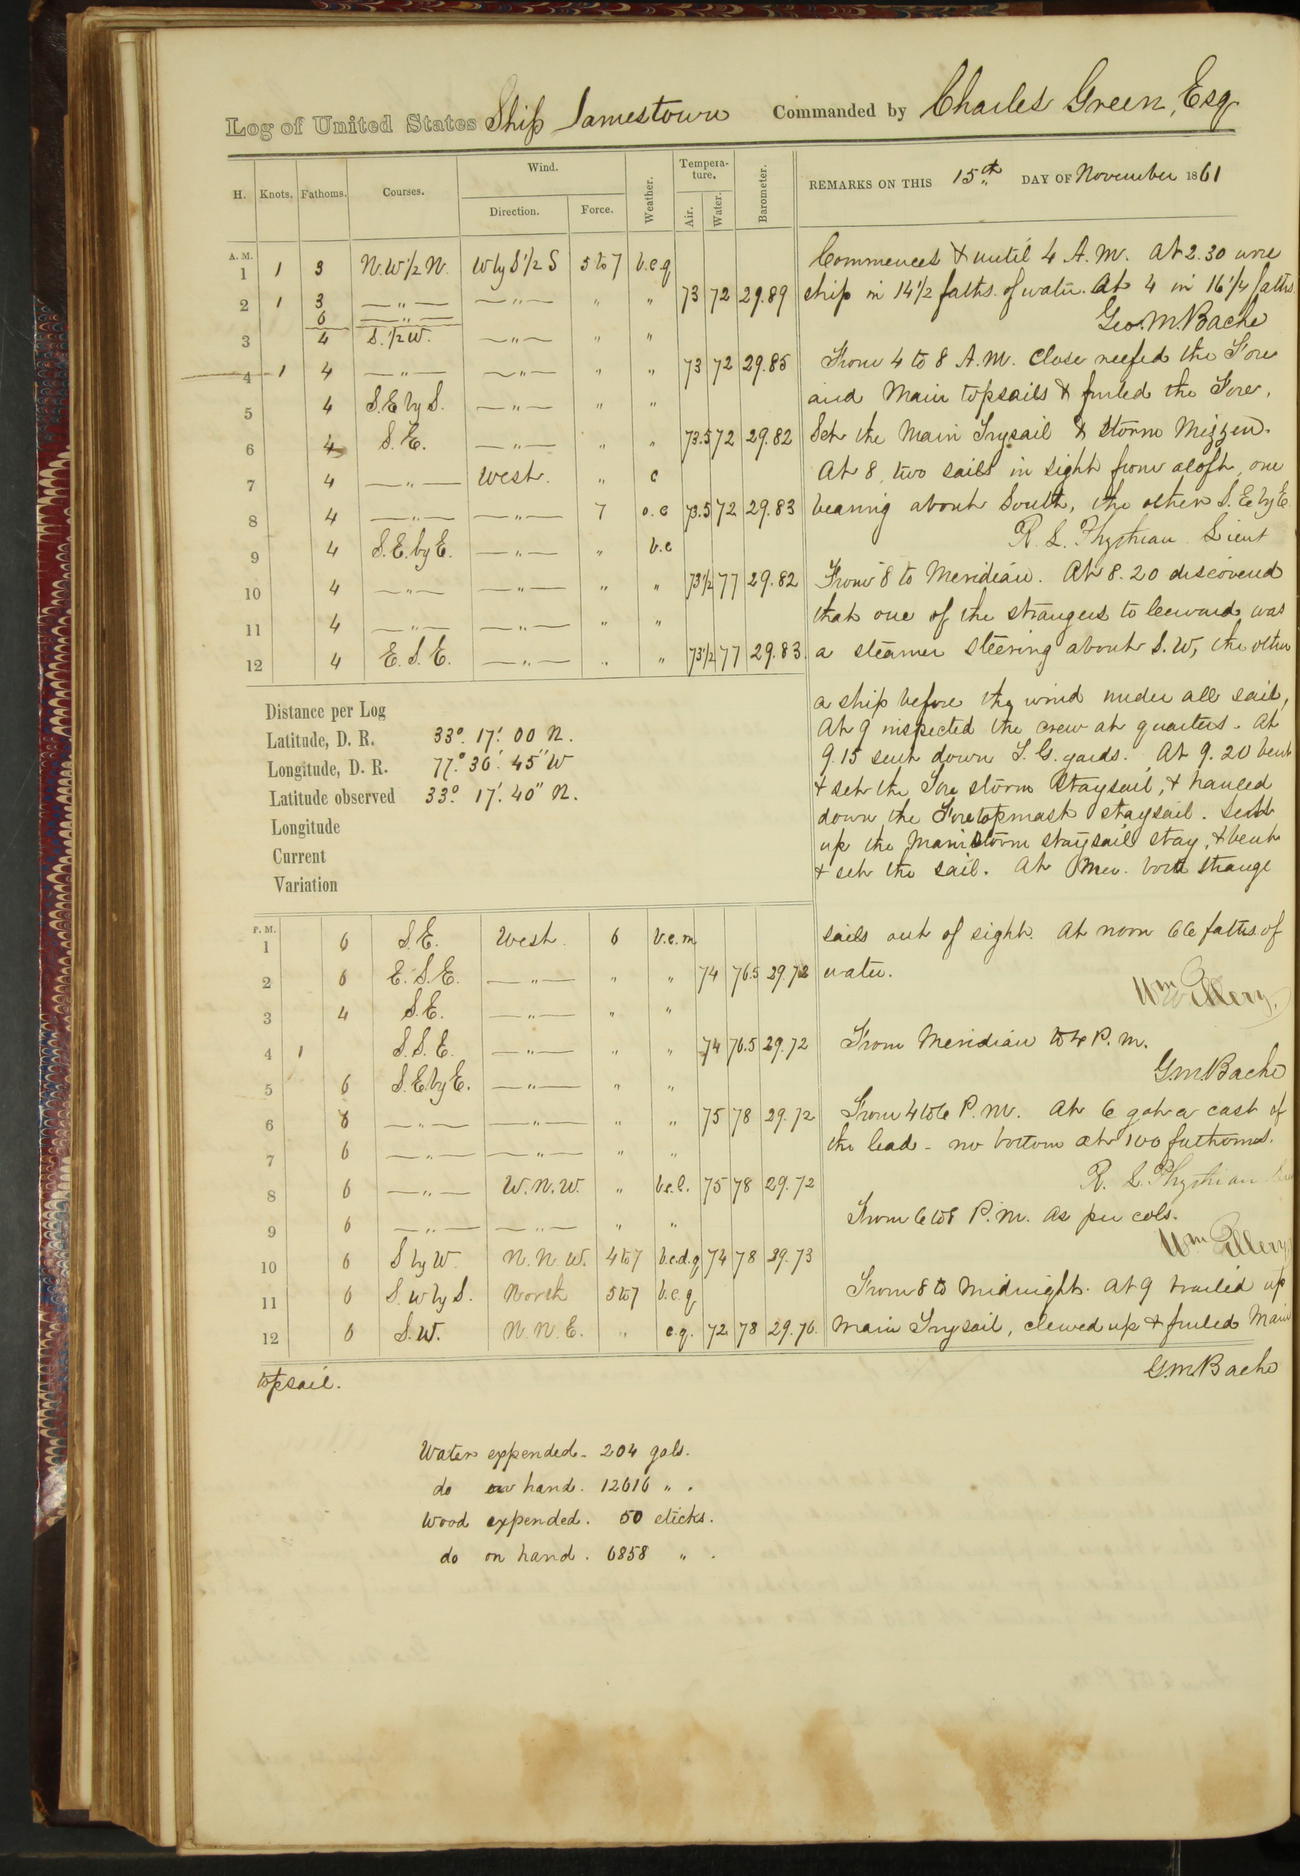 Log of United States Ship Jamestown Commanded by Charles Green, Esq
H. Knots. Fathoms. Courses. Wind. Direction. Force. Weather. Tempera-ture. Air. Water. Barometer. REMARKS ON THIS 15th DAY OF November 1861
A.M.
1 1 3 N.W 1/2 N. W by S 1/2 S 5 to 7 b.c.q
2 1 3 — " — — " — " " 73 72 29.89
6 — " —
3 4 S. 1/2 W. — " — " "
4 1 4 — " — — " — " " 73 72 29.85
5 4 S.E by S. — " — " "
6 4 S.E. — " — " " 73.5 72 29.82
7 4 — " — West. " c
8 4 — " — — " — 7 o.c 73.5 72 29.83
9 4 S.E. by E. — " — " b.c
10 4 — " — — " — " " 73 1/2 77 29.82
11 4 — " — — " — " "
12 4 E.S.E. — " — " " 73 1/2 77 29.83.
Commences & until 4 A.M. At 2.30 wore
ship in 14 1/2 faths. of water. At 4 in 16 1/4 faths.
Geo. M. Bache
From 4 to 8 A.M. Close reefed the Fore
and Main topsails & furled the Fore.
Set the Main Trysail & Storm Mizzen.
At 8, two sails in sight from aloft, one
bearing about South, the other S.E by E.
R. L. Phythian Lieut
From 8 to Meridian. At 8.20 discovered
that one of the strangers to leeward was
a steamer steering about S.W, the other
a ship before the wind under all sail,
At 9 inspected the crew at quarters. At
9.15 sent down T.G. yards. At 9.20 bent
& set the Fore storm Staysail, & hauled
down the Foretopmast staysail. Sent
up the Main storm staysail stay, & bent
& set the sail. At Mer. both strange
sails out of sight. At noon 66 faths of
water.
Wm Ellery.
Distance per Log
Latitude, D. R. 33° 17' 00 N.
Longitude, D. R. 77° 36' 45" W
Latitude observed 33° 17' 40" N.
Longitude
Current
Variation
P.M.
1 6 S.E. West. 6 b.c.m
2 6 E.S.E. — " — " " 74 76.5 29.72
3 4 S.E. — " — " "
4 1 S.S.E. — " — " " 74 76.5 29.72
5 6 S.E. by E. — " — " "
6 8 — " — — " — " " 75 78 29.72
7 6 — " — — " — " "
8 6 — " — W.N.W. " b.c.l. 75 78 29.72
9 6 — " — — " — " "
10 6 S by W. N.N.W. 4 to 7 b.c.d.q 74 78 29.73
11 6 S.W by S. North 5 to 7 b.c.q
12 6 S.W. N.N.E. " c.q. 72 78 29.76.
From Meridian to 4 P.M.
G.M. Bache
From 4 to 6 P.M. At 6 got a cast of
the lead - no bottom at 100 fathoms.
R. L. Phythian
From 6 to 8 P.M. As per cols.
Wm Ellery
From 8 to Midnight. At 9 brailed up
Main Trysail, clewed up & furled Main
topsail.
G.M. Bache
Water expended - 204 gals.
do on hand. 12616 " .
Wood expended. 50 sticks.
do on hand. 6858 " .